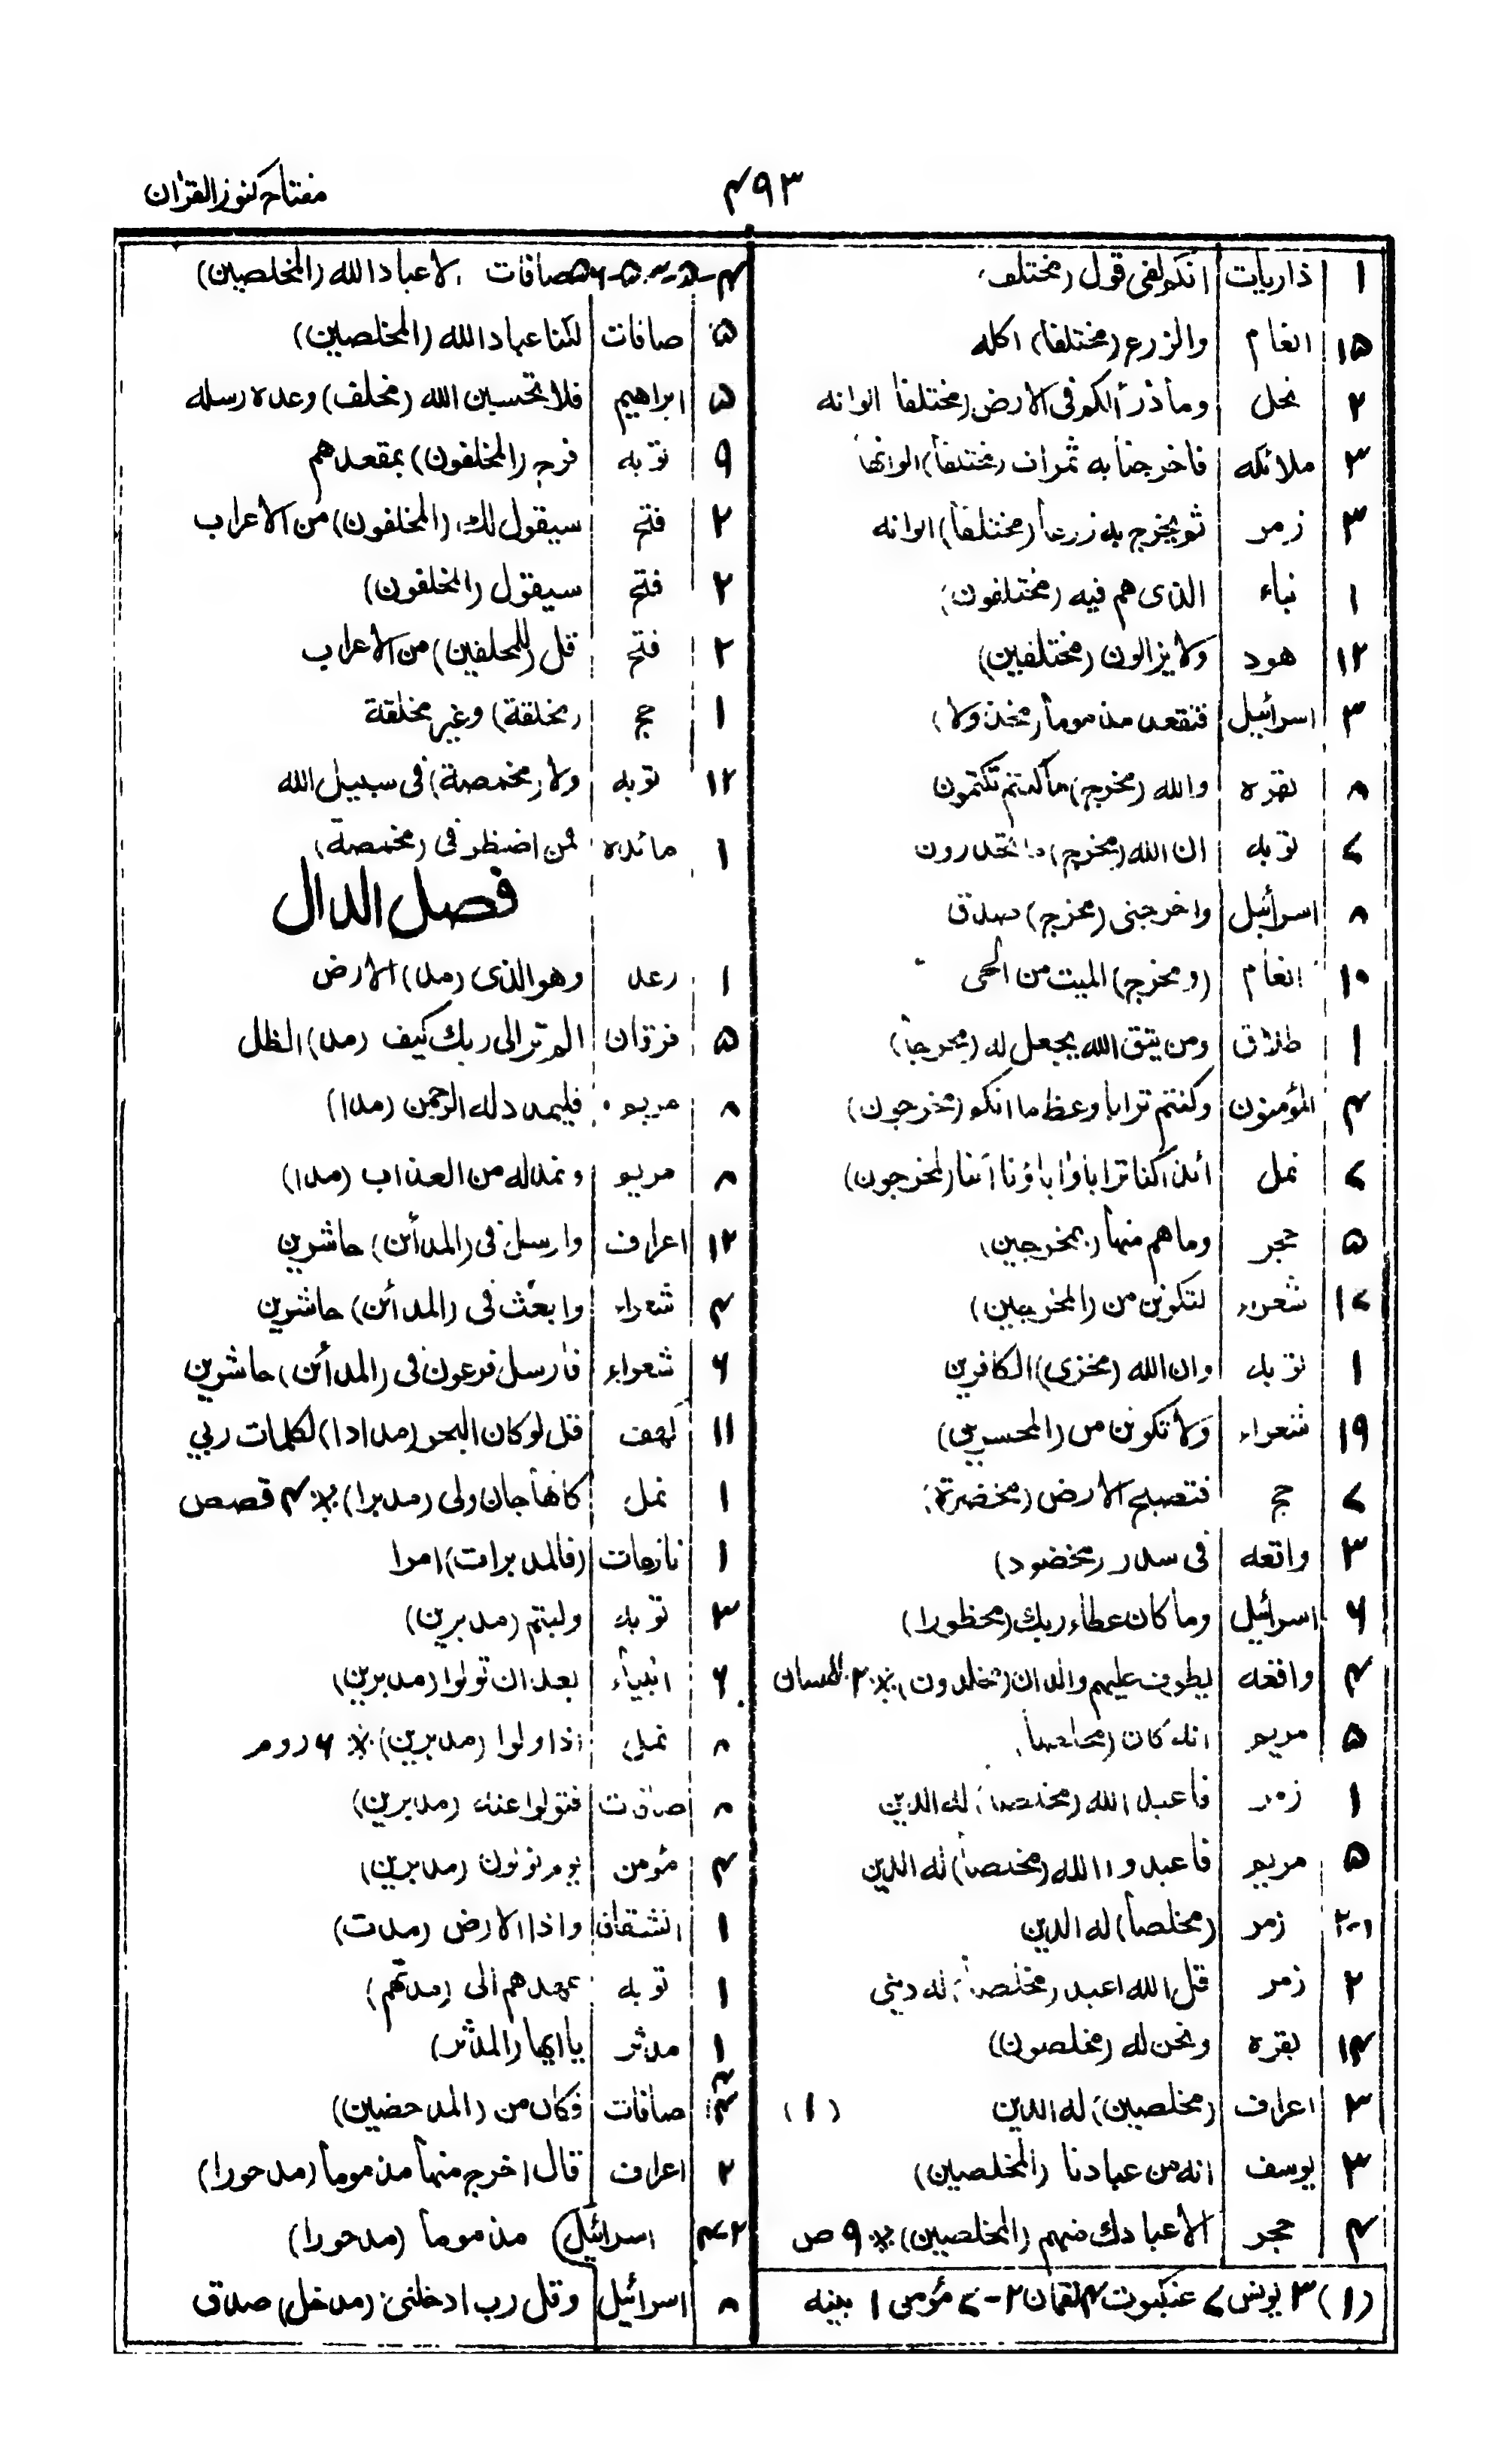 ۴۹۳
مفتاح کنوز القرٰان
۱ ذاریات انکم لفی قول (مختلف)
۱۵ انعام والزرع (مختلفا) اکله
۲ نحل وما ذرألکم فی الارض (مختلفا الوانه
۳ ملائکه فاخرجنا به ثمرات (مختلفا) الوانها
۳ زمر ثم یخرج به زرعا (مختلفا) الوانه
۱ نباء الذی هم فیه (مختلفون)
۱۲ هود ولا یزالون (مختلفین)
۳ اسرائیل فتقعد مذموما (مخذولا)
۸ بقره والله (مخرج) ما کنتم تکتمون
۷ توبه ان الله (مخرج) ما تحذرون
۸ اسرائیل واخرجنی (مخرج) صدق
۱۰ انعام (ومخرج) المیت من الحی
۱ طلاق ومن یتق الله یجعل له (مخرجا)
۴ المؤمنون وکنتم ترابا وعظاما انکم (مخرجون)
۷ نمل ائذاکنا ترابا واٰباؤنا أئنا (لمخرجون)
۵ حجر وما هم منها (بمخرجین)
شعراء لتکونن من (المخرجین)
۱ توبه وان الله (مخزی) الکافرین
۱۹ شعراء ولا تکونن من (المخسرین)
۷ حج فتصبح الارض (مخضرة)
۳ واقعه فی سدر (مخضود)
۶ اسرائیل وما کان عطاء ربك (محظورا)
۴ واقعه یطوف علیهم والدان (مخلدون) ※ ۲
۵ مریم انه کان (مخلصا)
۱ زمر فاعبد الله (مخلصا) له الدین
۵ مریم فاعبدوا الله (مخلصا) له الدین
۱-۲ زمر (مخلصا) له الدین
۲ زمر قل الله اعبد (مخلصا) له دینی
۱۴ بقره ونحن له (مخلصون)
۳ اعراف (مخلصین) له الدین (۱)
۳ یوسف انه من عبادنا (المخلصین)
۴ حجر الاعبادك منهم (المخلصین) ※ ۹ ص
(۱) ۳ یونس ۷ عنکبوت ۴ لقمان ۲-۷ مؤمن ۱ بینه
صافات الاعباد الله (المخلصین)
۵ صافات لکنا عباد الله (المخلصین)
۵ ابراهیم فلا تحسبن الله (مخلف) وعده رسله
۹ توبه فرح (المخلفون) بمقعدهم
۲ فتح سیقول لك (المخلفون) من الاعراب
۲ فتح سیقول (المخلفون)
۲ فتح قل (للمخلفین) من الاعراب
۱ حج (مخلقة) وغیر مخلقة
۱۲ توبه ولا (مخمصة) فی سبیل الله
۱ مائده فمن اضطر فی (مخمصة)
فصل الدال
۱ رعد وهو الذی (مد) الارض
۵ فرقان الم تر الی ربك کیف (مد) الظل
۸ مریم فلیمدد له الرحمن (مدا)
۸ مریم ونمد له من العذاب (مدا)
۱۲ اعراف وارسل فی (المدأئن) حاشرین
۴ شعراء وابعث فی (المدأئن) حاشرین
۶ شعراء فارسل فرعون فی (المدأئن) حاشرین
۱۱ کهف قل لو کان البحر (مدادا) لکلمات ربی
۱ نمل کانها جان ولی (مدبرا) ※ ۴ قصص
۱ نازعات (فالمدبرات) امرا
۳ توبه ولیتم (مدبرین)
۶ انبیاء بعد ان تولوا (مدبرین)
۸ نمل اذا ولوا (مدبرین) ※ ۶ روم
۸ صافات فتولوا عنه (مدبرین)
۴ مؤمن یوم تولون (مدبرین)
۱ انشقاق واذا الارض (مدت)
۱ توبه عهدهم الی (مدتهم)
۱ مدثر یا ایها (المدثر)
صافات فکان من (المدحضین)
۲ اعراف قال اخرج منها مذموما (مدحورا)
۲-۴ اسرائیل مذموما (مدحورا)
۸ اسرائیل وقل رب ادخلنی (مدخل) صدق